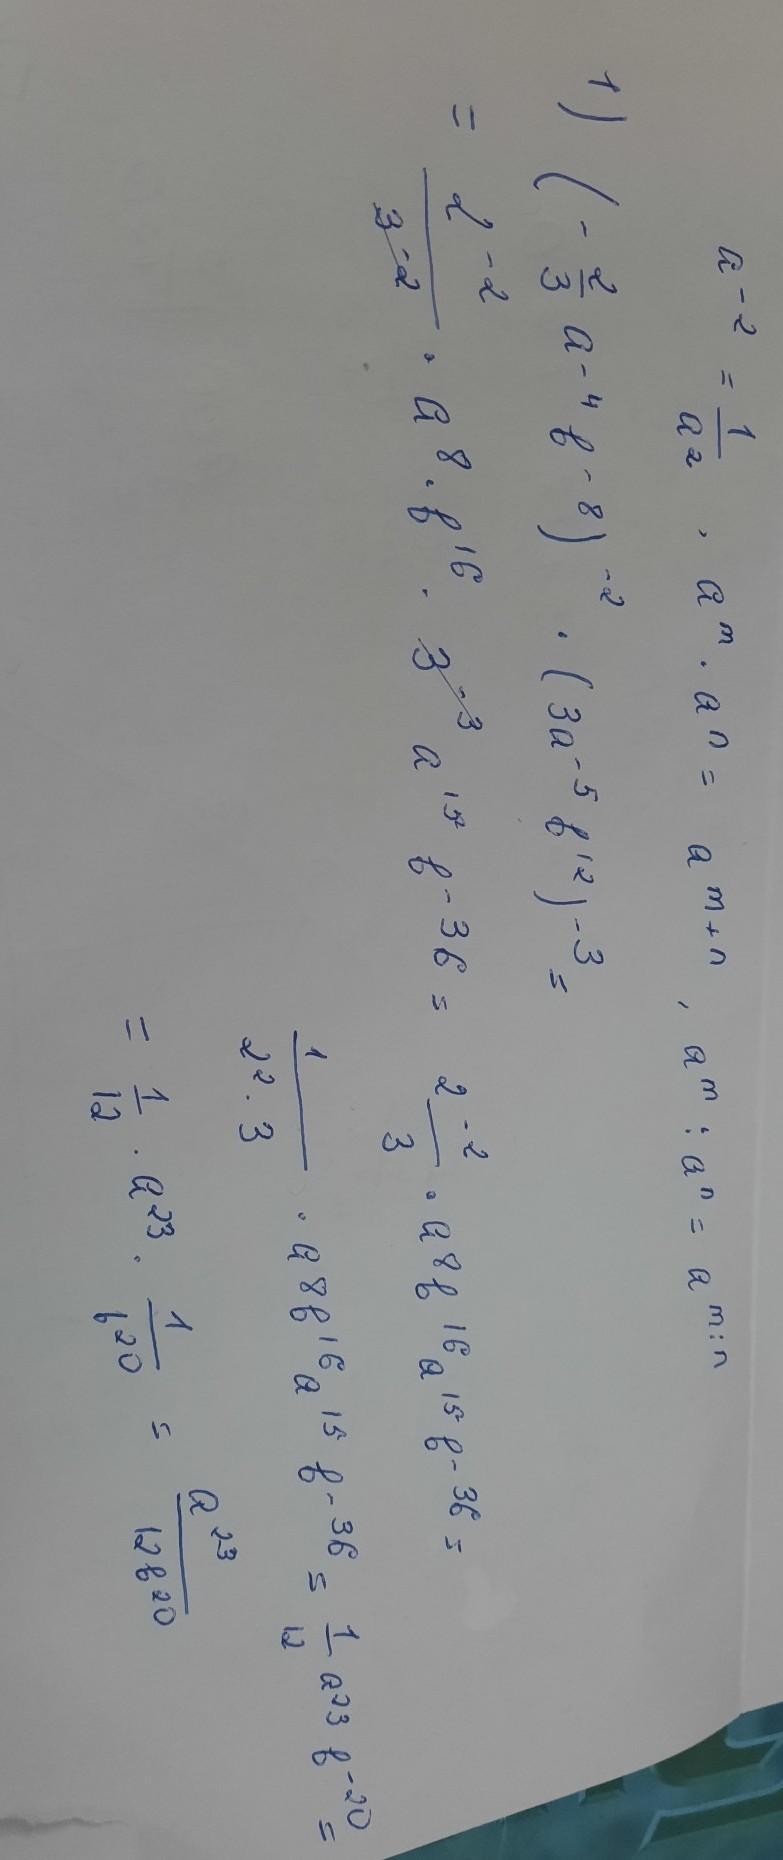 a⁻² = 1/a², aᵐ · aⁿ = aᵐ⁺ⁿ, aᵐ : aⁿ = aᵐ:ⁿ
1) (-2/3 a⁻⁴ b⁻⁸)⁻² · (3a⁻⁵ b¹²)⁻³ =
= 2⁻²/3⁻² · a⁸ · b¹⁶ · 3⁻³ a¹⁵ b⁻³⁶ = 2⁻²/3 · a⁸b¹⁶a¹⁵b⁻³⁶ =
1/(2² · 3) · a⁸b¹⁶a¹⁵b⁻³⁶ = 1/12 a²³ b⁻²⁰ =
= 1/12 · a²³ · 1/b²⁰ = a²³/12b²⁰